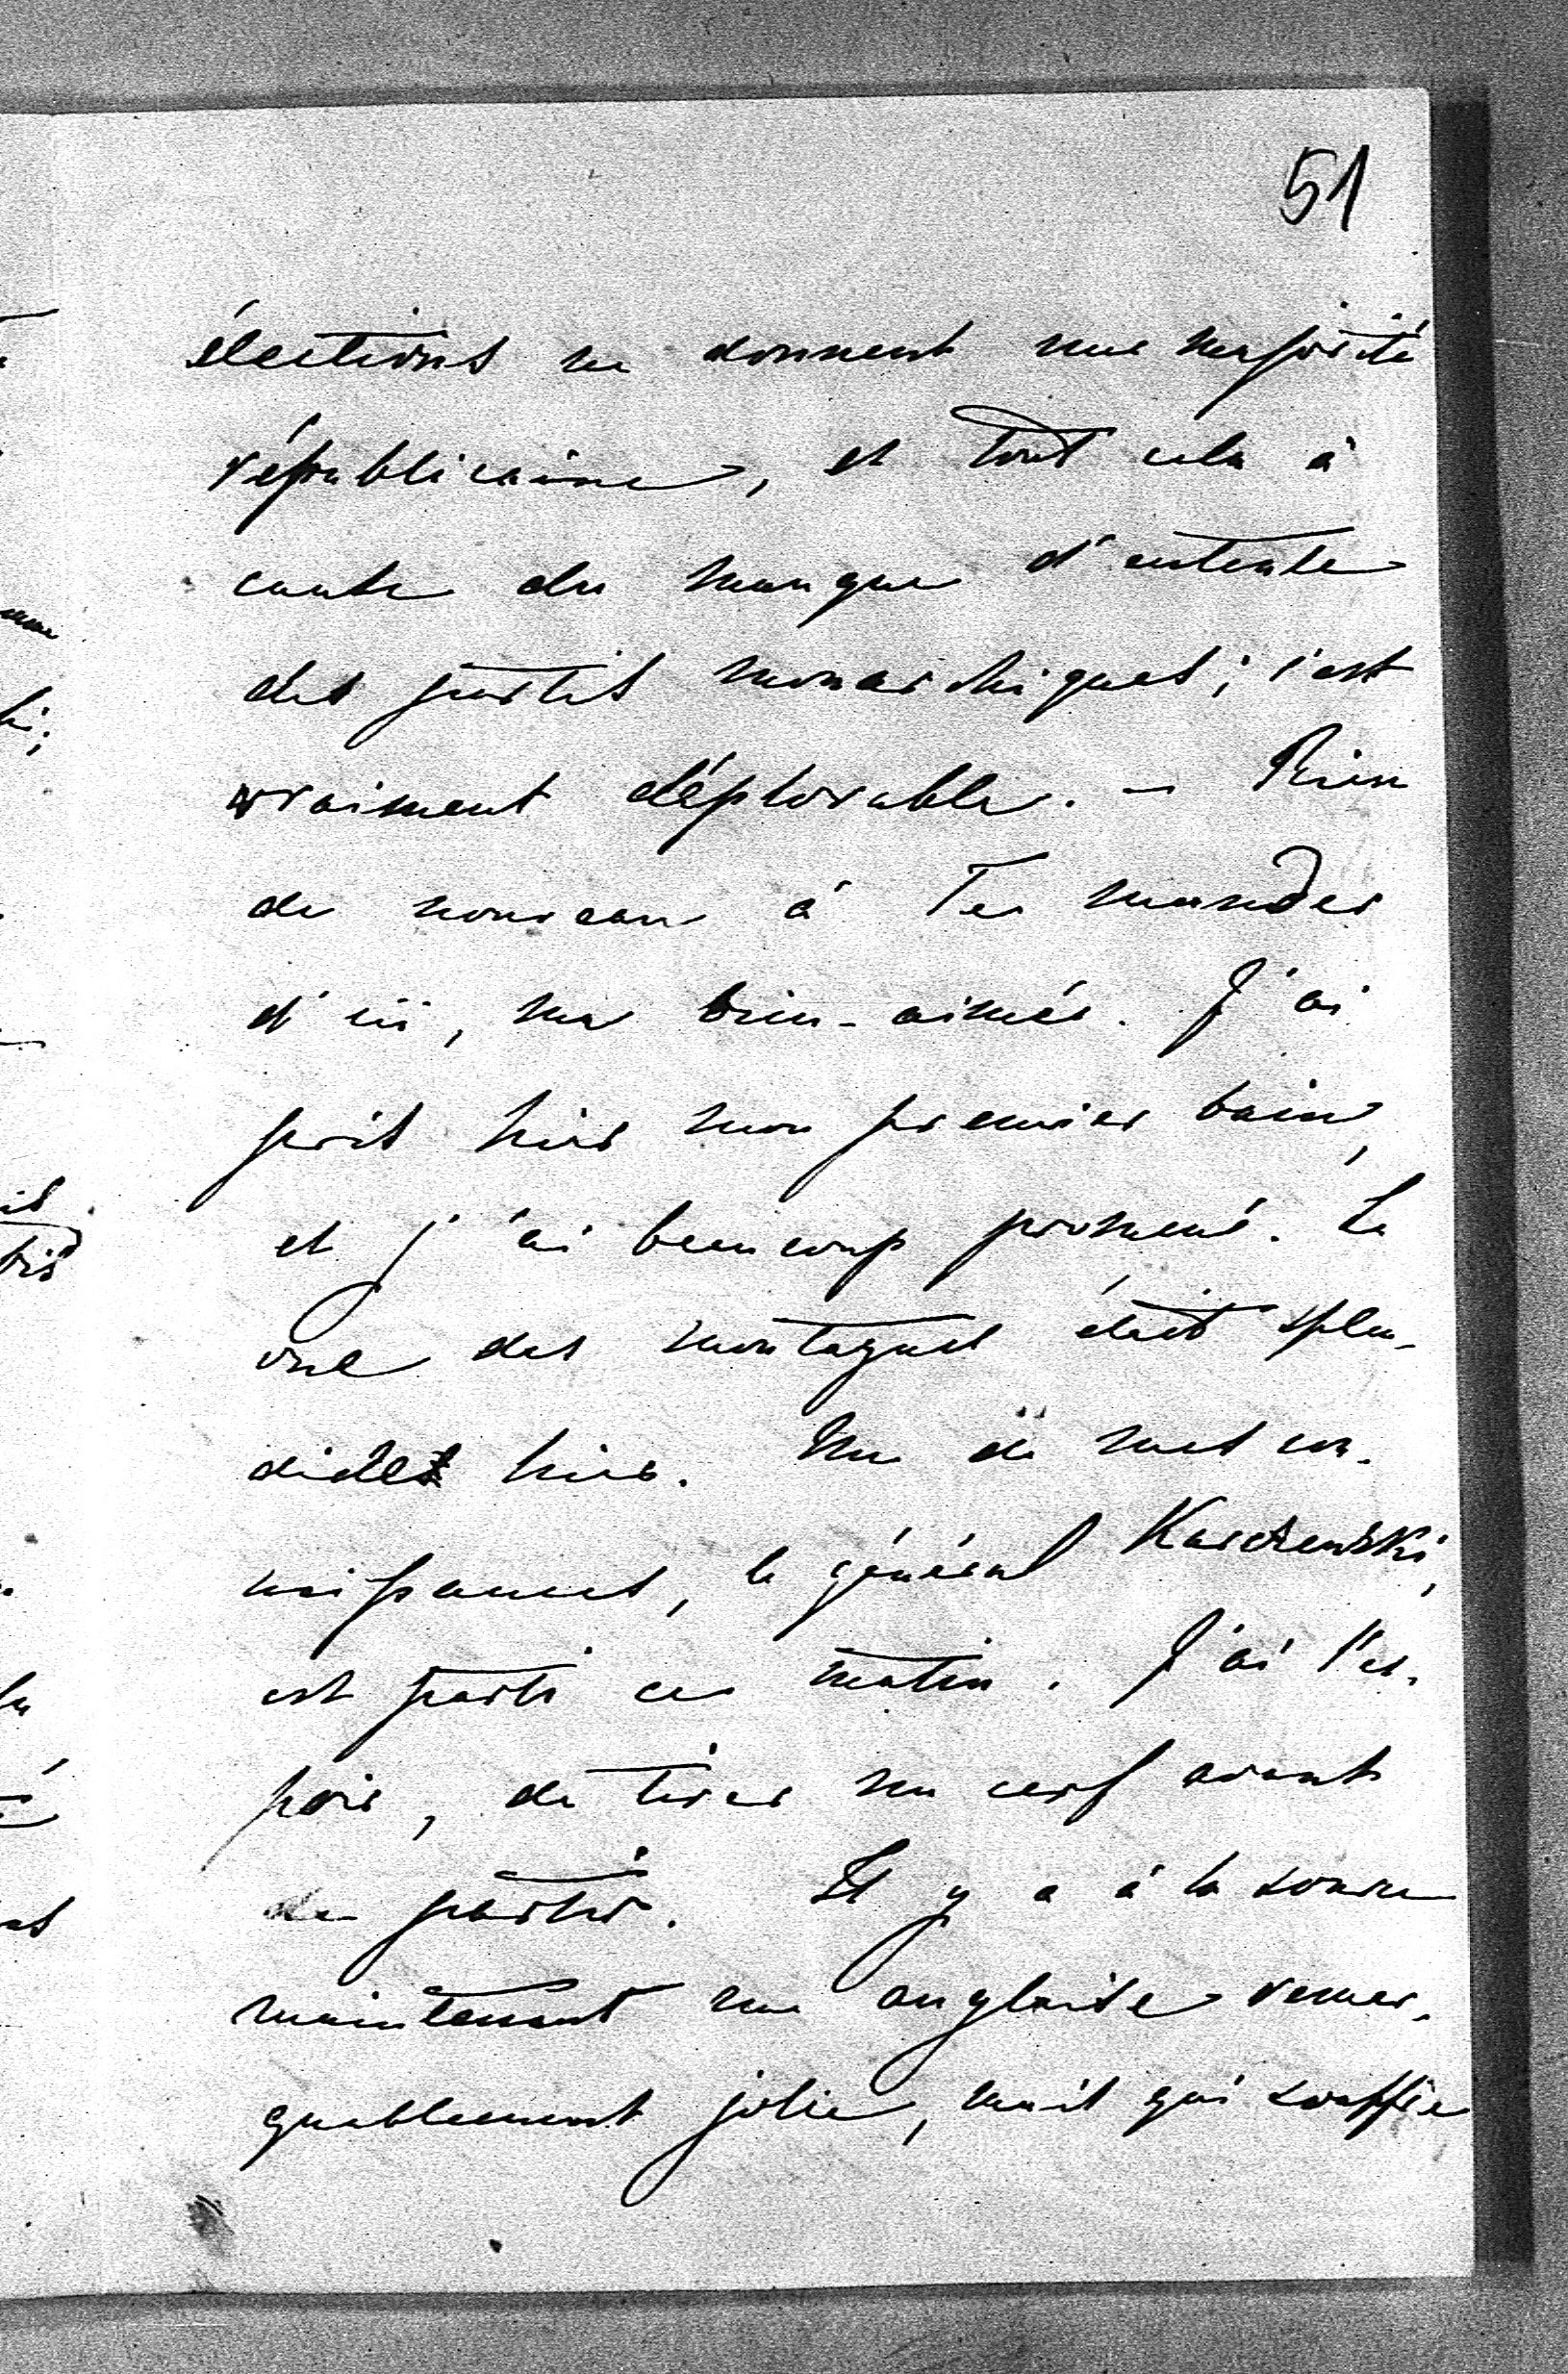 51
élections ne donnent une majorité
républicaine, et tout cela à
cause du manque d'entente
des partis monarchiques; c'est
vraiment déplorable. – Rien
de nouveau à Te mander
d'ici, ma bien-aimée. J'ai
pris hier mon premier bain,
et j'ai beaucoup promené. La
vue des montagnes était splen-
dide hier. Une de mes con-
naissances, le général
est parti ce matin. J'ai l'es-
poir, de tirer un cerf avant
de partir. Il y a à la source
maintenant une anglaise remar-
quablement jolie, mais qui souffre